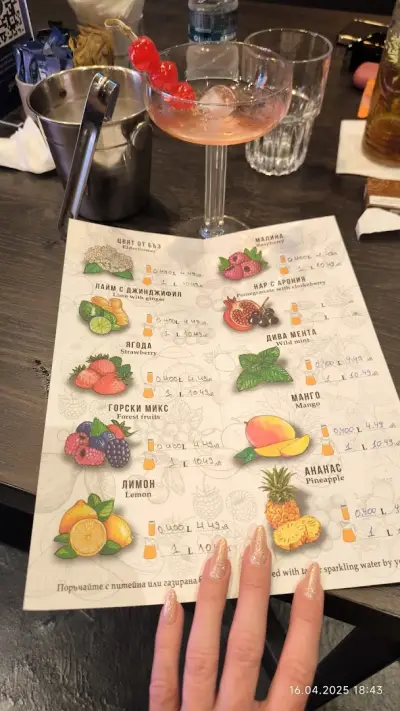 ЦВЯТ ОТ БЪЗ
Elderflower
0,400 L 4.49лв
1 L 10.49
МАЛИНА
Raspberry
0,400 L 4.49лв
1 L 10.49
ЛАЙМ С ДЖИНДЖИФИЛ
Lime with ginger
0,400 L 4.49лв
1 L 10.49
НАР С АРОНИЯ
Pomegranate with chokeberry
0,400 L 4.49лв
1 L 10.49
ЯГОДА
Strawberry
0,400 L 4.49лв
1 L 10.49лв
ДИВА МЕНТА
Wild mint
0,400 L 4.49лв
1 L 10.49
ГОРСКИ МИКС
Forest fruits
0,400 L 4.49лв
1 L 10.49лв
МАНГО
Mango
0,400 L 4.49
1 L 10.49
ЛИМОН
Lemon
0,400 L 4.49лв
1 L
АНАНАС
Pineapple
0,400 L
1 L
Поръчайте с питейна или газирана
with sparkling water by
16.04.2025 18:43